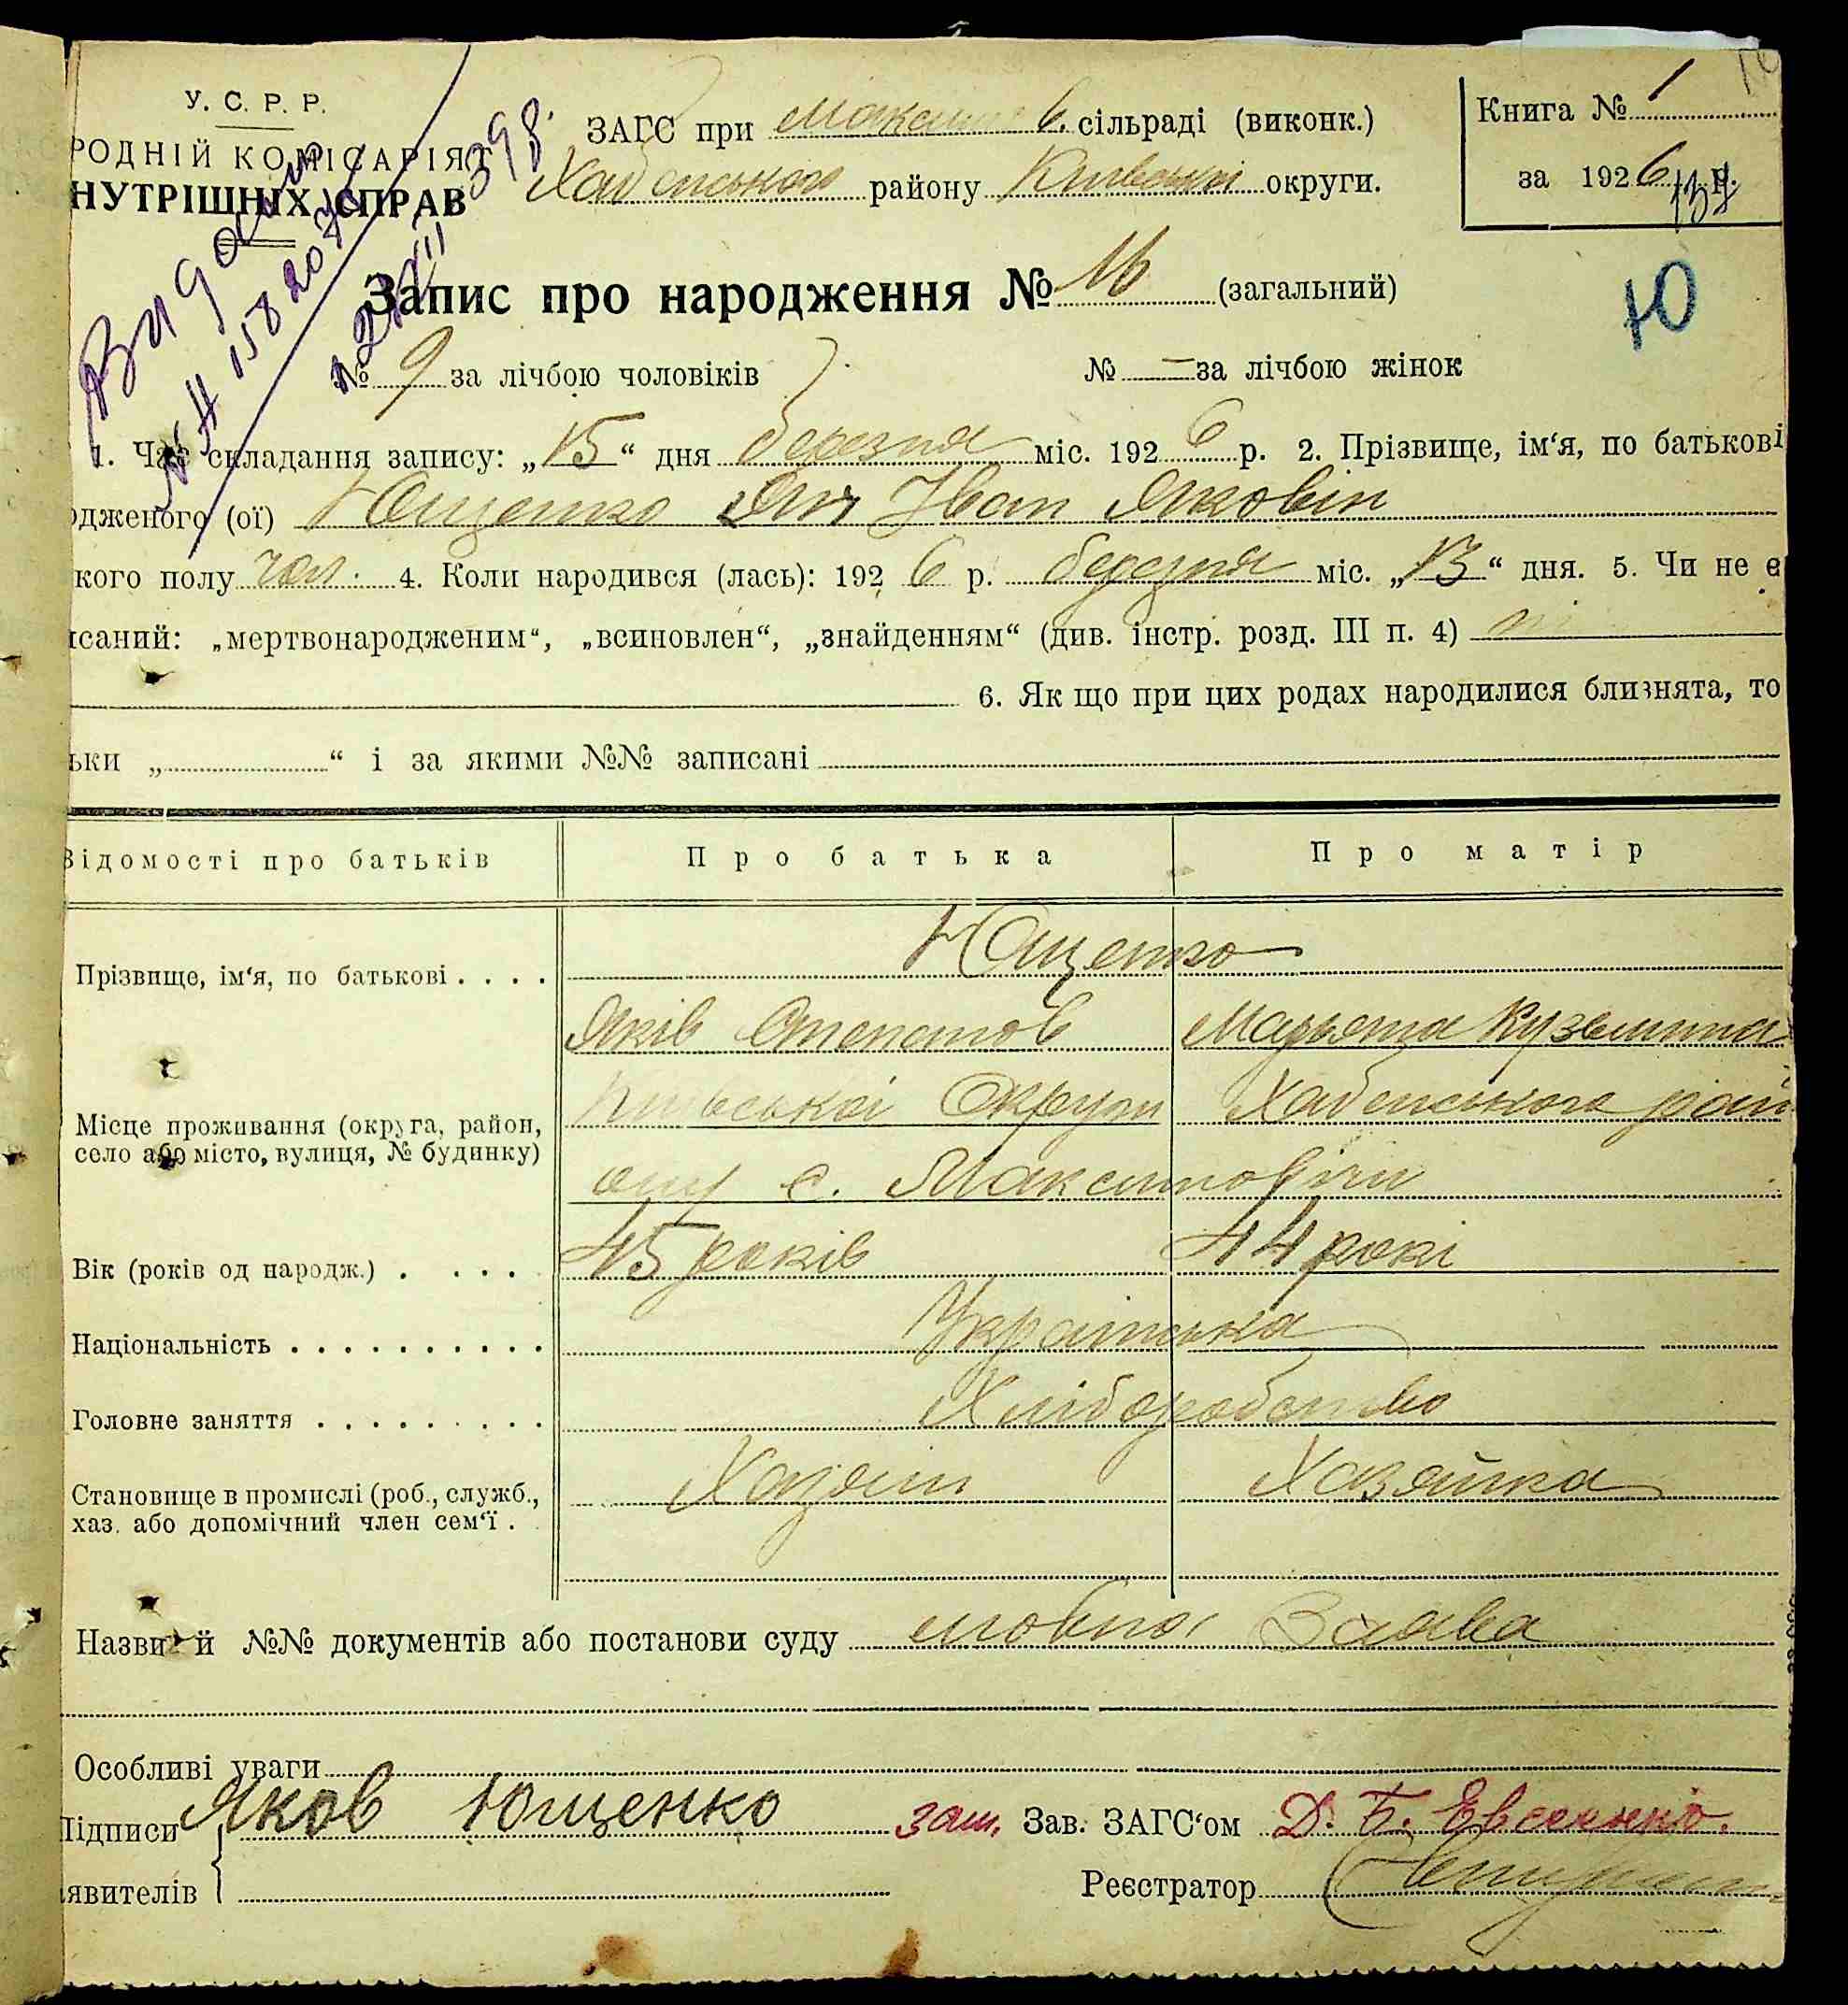 У. С. Р. Р.
РОДНІЙ КОМІСАРІЯТ
НУТРІШНІХ СПРАВ
ЗАГС при сільраді (виконк.)
Хабенського району Київської округи.
Книга № 1
за 1926 р.
137
Видано
398
Запис про народження № 16 (загальний)
10
№ 9 за лічбою чоловіків № — за лічбою жінок
1. Час складання запису: „15“ дня березня міс. 1926 р. 2. Прізвище, ім‘я, по батькові
одженого (ої) Ющенко Іван Яковів
кого полу чол. 4. Коли народився (лась): 1926 р. березня міс. „13“ дня. 5. Чи не є
исаний: „мертвонародженим“, „всиновлен“, „знайденням“ (див. інстр. розд. III п. 4) ні
6. Як що при цих родах народилися близнята, то
ьки „ “ і за якими №№ записані
Відомості про батьків Про батька Про матір
Ющенко
Прізвище, ім‘я, по батькові . . . .
Яків Степанов Марьяна Кузьмина
Київської Округи Хабенського рай
Місце проживання (округа, район,
село або місто, вулиця, № будинку)
ону с. Максимовичи
Вік (років од народж.) . . . . 45 років 44 рокі
Національність . . . . . . . . . . Українська
Головне заняття . . . . . . . . . Хліборобство
Становище в промислі (роб., служб., Хазяїн Хазяйка
хаз. або допомічний член сем‘ї .
Назви й №№ документів або постанови суду мовна Заява
Особливі уваги
Підписи Яков Ющенко зам. Зав. ЗАГС‘ом Д. Б. Евсеенко.
явителів Реєстратор